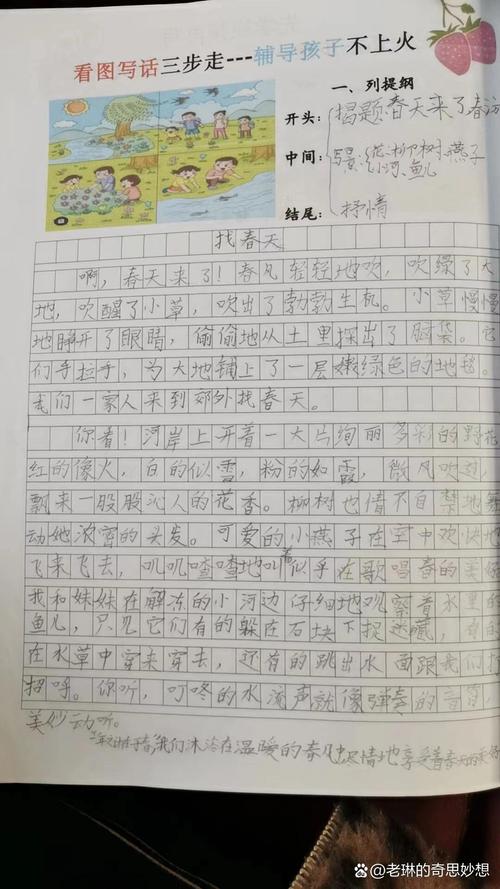 看图写话三步走---辅导孩子不上火
一、列提纲
开头：揭题春天来了春游
中间：写景：花、柳树、燕子
小河、鱼儿
结尾：抒情
找春天
啊，春天来了！春风轻轻地吹，吹绿了大
地，吹醒了小草，吹出了勃勃生机。小草慢慢
地睁开了眼睛，偷偷地从土里探出了脑袋。它
们手拉手，为大地铺上了一层嫩绿色的地毯。
我们一家人来到郊外找春天。
你看！河岸上开着一大片绚丽多彩的野花
红的像火，白的似雪，粉的如霞，微风吹过，
飘来一股股沁人的花香。柳树也情不自禁地舞
动她浓密的头发。可爱的小燕子在空中欢快地
飞来飞去，叽叽喳喳地叫着似乎在歌唱春的美好
我和妹妹在解冻的小河边仔细地观察着水里的
鱼儿，只见它们有的躲在石块下捉迷藏，有的
在水草中穿来穿去，还有的跳出水面跟我们打
招呼。你听，叮咚的水流声就像弹奏的音
美妙动听。
一年之计在于春，我们沐浴在温暖的春风中，尽情地享受着春天的美好
@老琳的奇思妙想